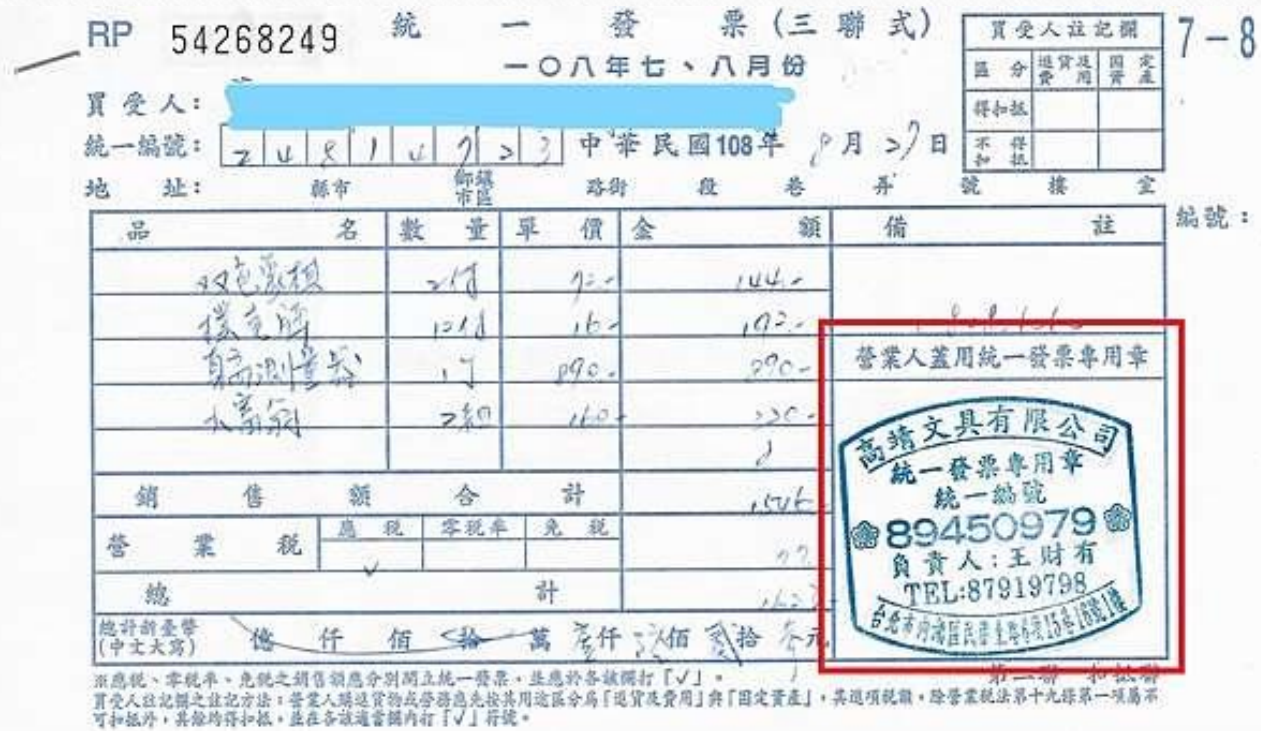 RP 54268249 統一發票(三聯式) 7-8
一〇八年七、八月份
買受人註記欄
區分 進貨及費用 固定資產
得扣抵
不得扣抵
買受人:
統一編號: 中華民國108年 8月 27日
地址: 縣市 鄉鎮市區 路街 段 巷 弄 號 樓 室
編號:
品名 數量 單價 金額 備註
双色象棋 2付 72.- 144.-
撲克牌 12付 16.- 192.-
身高測量器 1 890.- 890.-
2組 160.-
銷售額合計
營業稅 應稅 零稅率 免稅
√
總計
總計新臺幣(中文大寫) 億 仟 佰 拾 萬 壹仟 佰 貳拾 元
營業人蓋用統一發票專用章
高靖文具有限公司
統一發票專用章
統一編號
89450979
負責人:王財有
TEL:87919798
台北市內湖區民權東路6段15巷16號1樓
第二聯 扣抵聯
※應稅、零稅率、免稅之銷售額應分別開立統一發票,並應於各該欄打「√」。
買受人註記欄之註記方法:營業人購進貨物或勞務應先按其用途區分為「進貨及費用」與「固定資產」,其進項稅額,除營業稅法第十九條第一項屬不
可扣抵外,其餘均得扣抵,並在各該適當欄內打「√」符號。